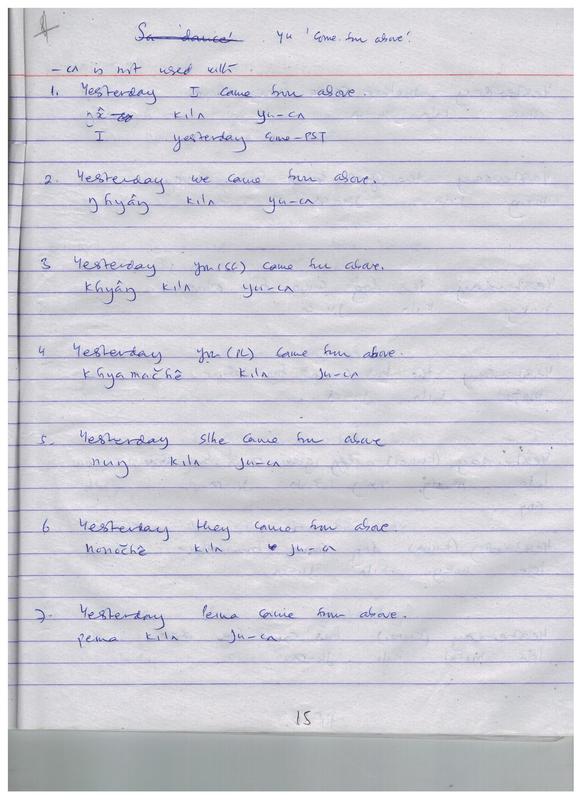 Sa 'dance' yu 'come from above'.
-cʌ is not used with.
1. Yesterday I came from above.
ŋê kilʌ yu-cʌ
I yesterday come-PST
2. Yesterday we came from above.
ŋhyâŋ kilʌ yu-cʌ
3 Yesterday you (SG) came from above.
khyâŋ kilʌ yu-cʌ
4 Yesterday you (PL) came from above.
khyamačhê kilʌ ju-cʌ
5. Yesterday s/he came from above
nuŋ kilʌ ju-cʌ
6 Yesterday they came from above.
nonočhê kilʌ ju-cʌ
7. Yesterday Pema came from above.
pema kilʌ ju-cʌ
15